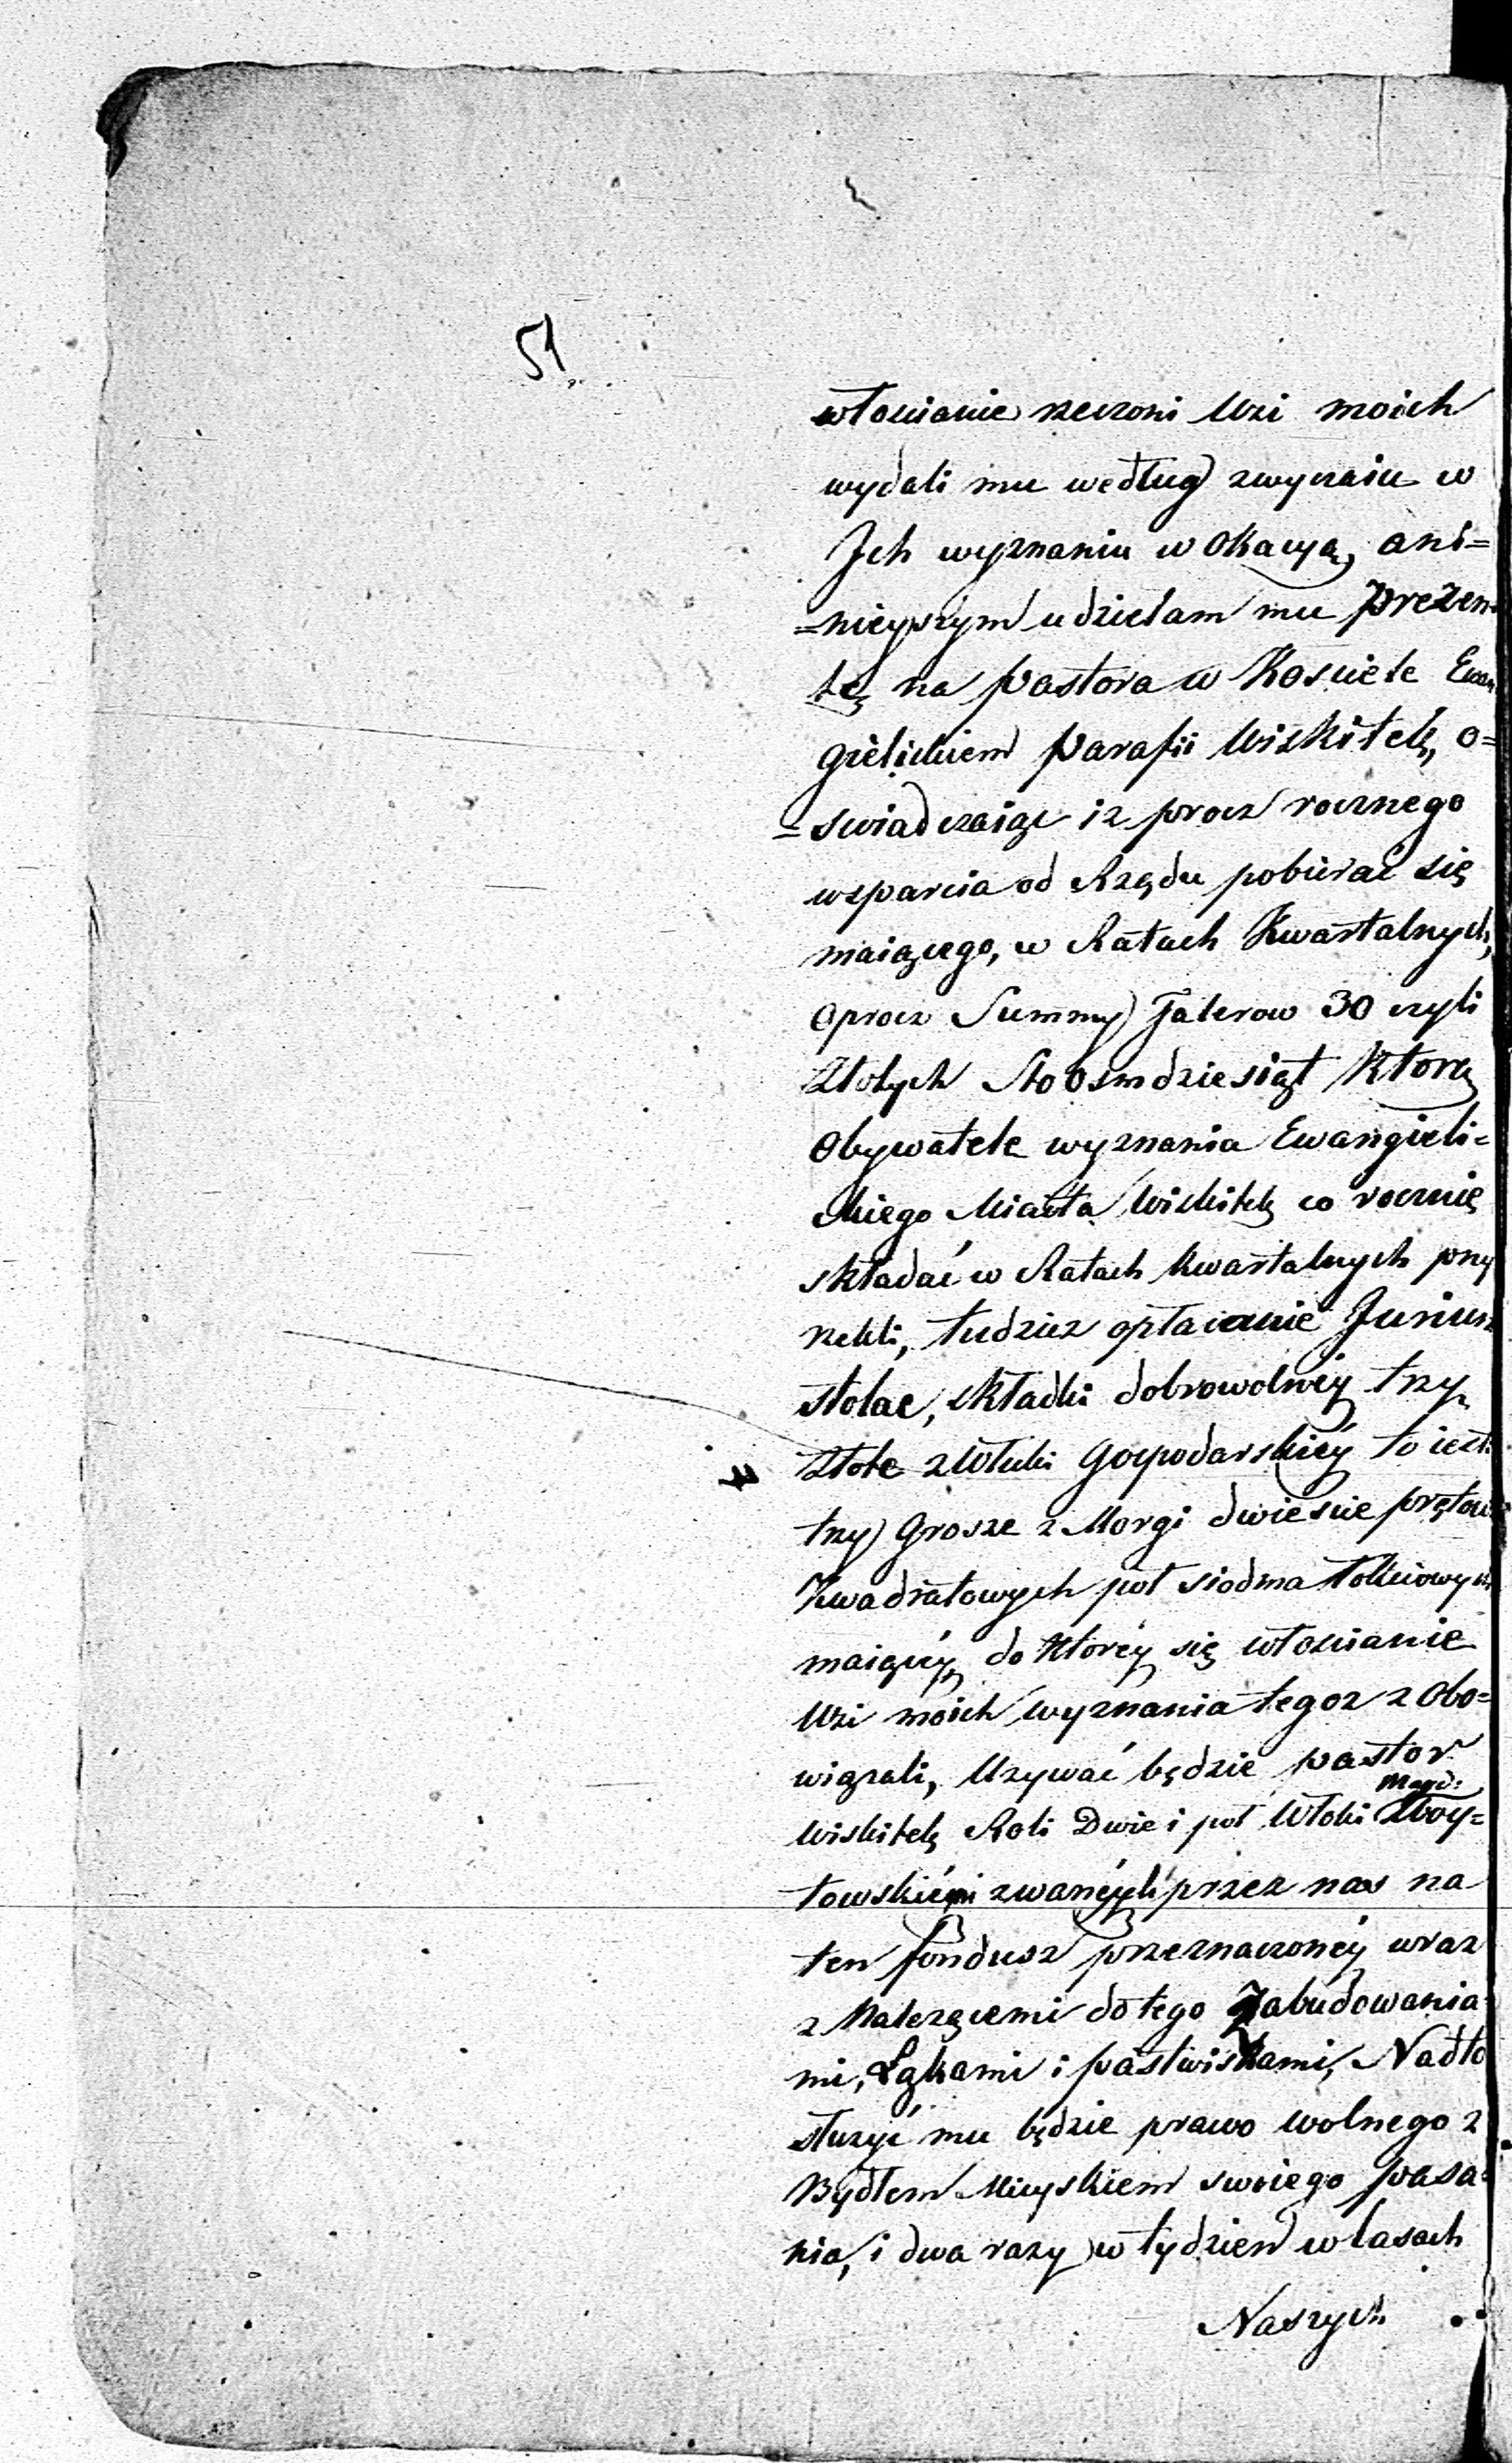 51
włościanie rzeczoni Wsi moich
wydali mu według zwyczaiu w
Ich wyznaniu wokacyą, ani=
=nieyszym udzielam mu prezen
tę na pastora w Kosciele Ewan
gielickiem parafii Wiskitek, o=
=swiadczaiąc iz procz rocznego
wsparcia od Rządu pobierać się
maiącego, w Ratach Kwartalnych,
oprocz Summy Talerow 30 czyli
Złotych Sto osmdziesiąt którą
Obywatele wyznania Ewangieli=
ckiego Miasta Wiskitek co rocznie
składać w Ratach kwartalnych przy
rzekli, tudziez opłacanie Jurium
stolae, składki dobrowolney trzy
Złote z Włuki Gospodarskiey to iest
trzy Grosze z Morgi dwiescie prętow
Kwadratowych poł siodma łokciowych
maiącey, do ktorey się włoscianie
Wsi moich wyznania tegoz zobo=
wiązali, Uzywać będzie pastor
Wiskitek Roli Dwie i poł Włoki Magd: Woy=
towskiey zwaney przez nas na
ten fondusz przeznaczoney wraz
z Nalezącemi do tego Zabudowania
mi, Łąkami i pastwiskami, Nadto
słuzyć mu będzie prawo wolnego z
Bydłem Mieyskiem swoiego pasa=
nia, i dwa razy w tydzien w lasach
Naszych